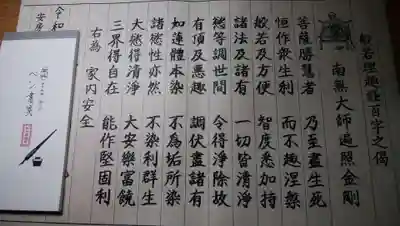 般若理趣経百字之偈
南無大師遍照金剛
菩薩勝慧者 乃至盡生死
恒作衆生利 而不趣涅槃
般若及方便 智度悉加持
諸法及諸有 一切皆清浄
慾等調世間 令得浄除故
有頂及悪趣 調伏盡諸有
如蓮體本染 不為垢所染
諸慾性亦然 不染利群生
大慾得清浄 大安樂富饒
三界得自在 能作堅固利
右為 家内安全
令和
安房
ペン書